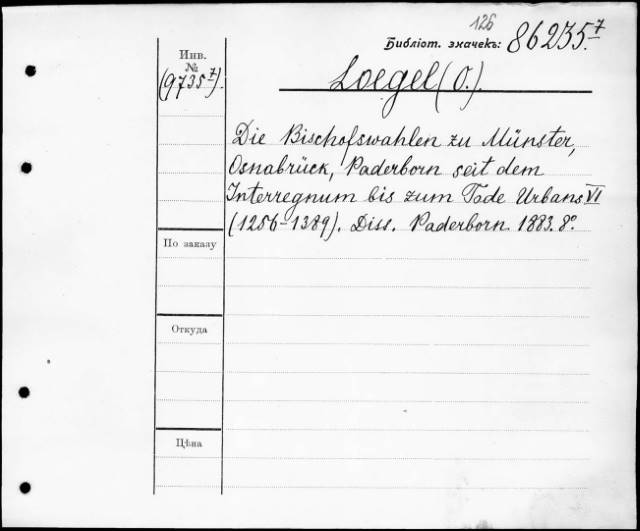 126
Библіот. значекъ: 86235.7
Инв.
№
(9735 7).
Loegel (O.).
Die Bischofswahlen zu Münster,
Osnabrück, Paderborn seit dem
Interregnum bis zum Tode Urbans VI
(1256-1389). Diss. Paderborn 1883. 8°.
По заказу
Откуда
Цѣна